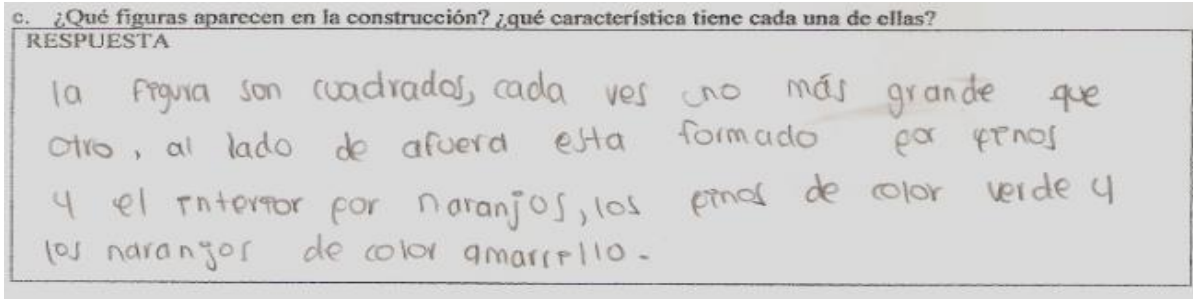 c. ¿Qué figuras aparecen en la construcción? ¿qué característica tiene cada una de ellas?
RESPUESTA
la figura son cuadrados, cada ves uno más grande que
otro, al lado de afuera esta formado por pinos
y el interior por naranjos, los pinos de color verde y
los naranjos de color amarrillo.